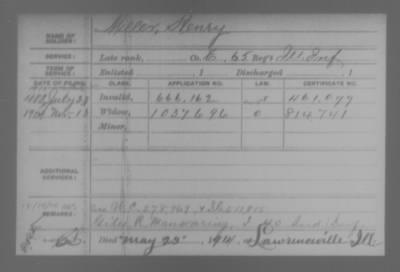 Miller, Henry
NAME OF SOLDIER:
SERVICE: Late rank, Co. E, 65 Reg't Ill. Inf
TERM OF SERVICE: Enlisted , 1 Discharged , 1
DATE OF FILING. CLASS. APPLICATION NO. LAW. CERTIFICATE NO.
July 28 Invalid, 666,162 461,077
1914 Nov. 13 Widow, 1037696 814,741
Minor,
ADDITIONAL SERVICES:
REMARKS:
Died May 22, 1914 at Lawrenceville Ill